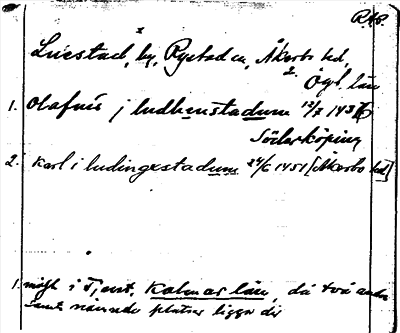 Luestad, by, Rystad sn, Åkerbo hd,
2. Ögl. län
1. Olafuus j ludhenstadum 12/7 1436
Söderköping
2. Karl i ludingestadum 24/6 1451 [Åkerbo hd]
1. möjl i Tjust, Kalmar län, då två andra
samt nämnda platser ligga där